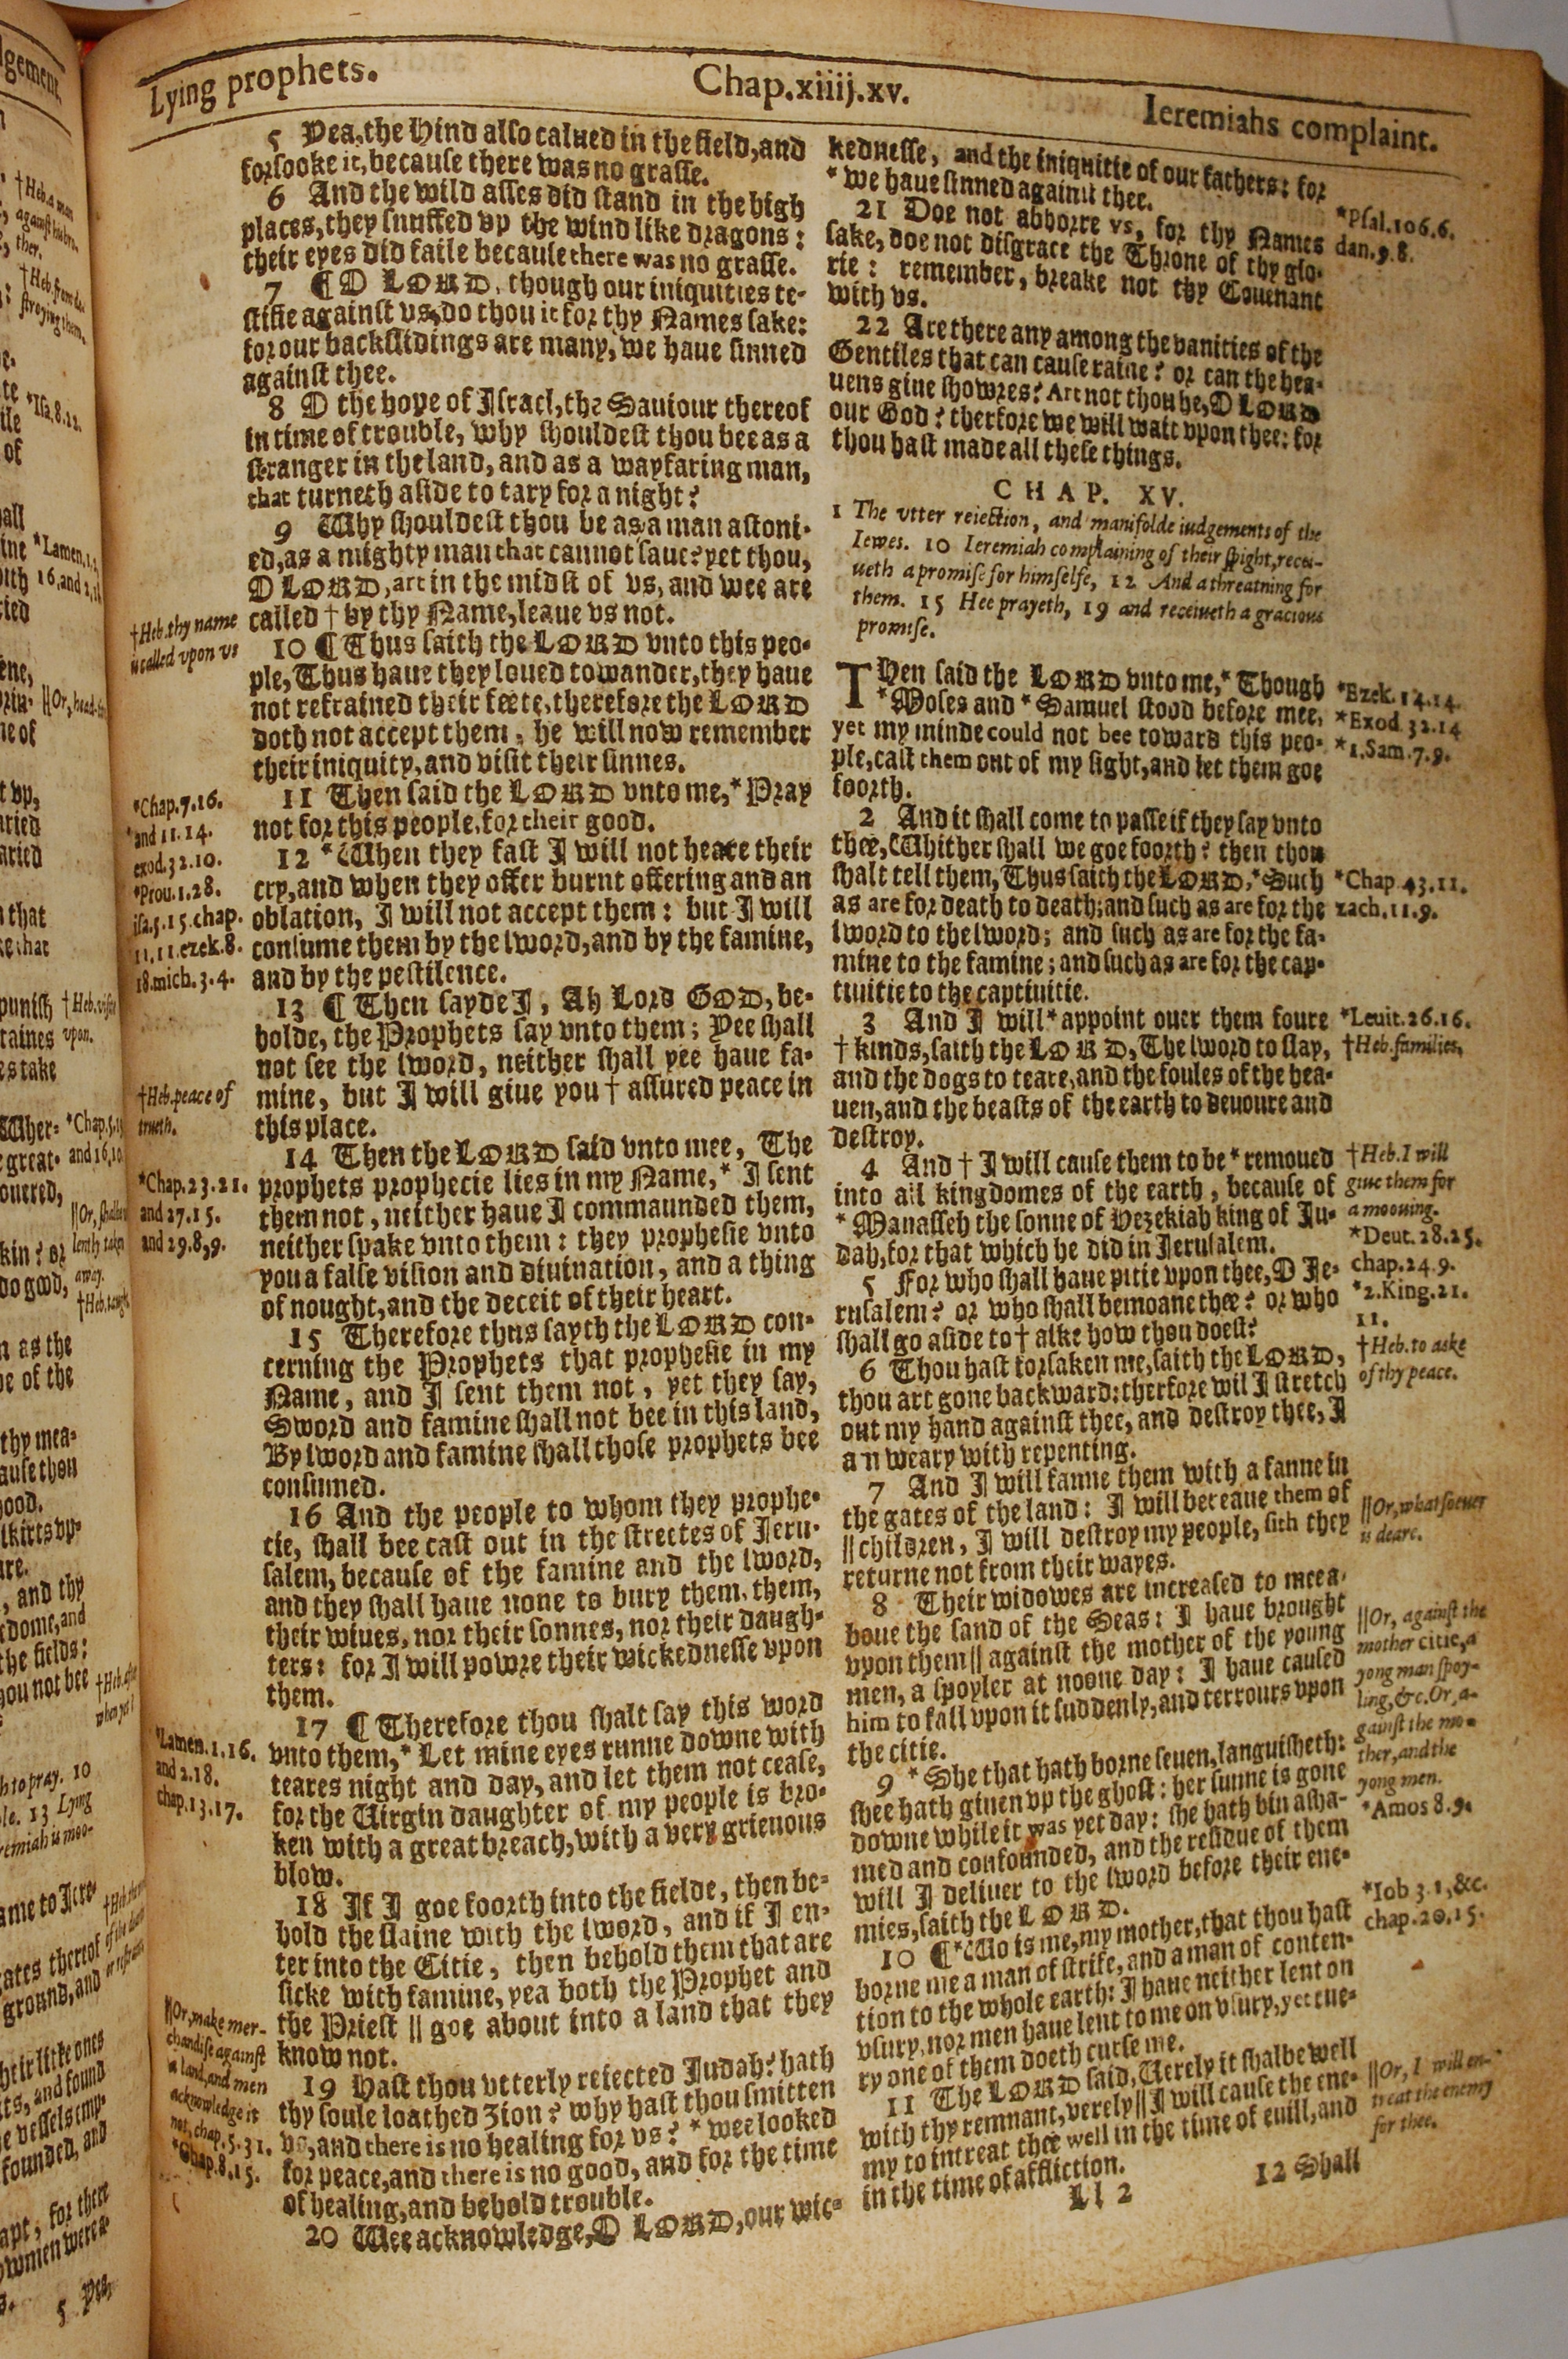 Lying prophets.
Chap.xiiij.xv.
Ieremiahs complaint.
5 Yea, the Hind also calued in the field, and
forsooke it, because there was no grasse.
6 And the wild asses did stand in the high
places, they snuffed vp the wind like dragons:
their eyes did faile because there was no grasse.
7 ¶ O LORD, though our iniquities te-
stifie against vs, do thou it for thy Names sake:
for our backslidings are many, we haue sinned
against thee.
8 O the hope of Israel, the Sauiour thereof
in time of trouble, why shouldest thou bee as a
stranger in the land, and as a wayfaring man,
that turneth aside to tary for a night?
9 Why shouldest thou be as a man astoni-
ed, as a mighty man that cannot saue? yet thou,
O LORD, art in the midst of vs, and wee are
called † by thy Name, leaue vs not.
10 ¶ Thus saith the LORD vnto this peo-
ple, Thus haue they loued to wander, they haue
not refrained their feete, therefore the LORD
doth not accept them, he will now remember
their iniquity, and visit their sinnes.
11 Then said the LORD vnto me,* Pray
not for this people, for their good.
12 *When they fast I will not heare their
cry, and when they offer burnt offering and an
oblation, I will not accept them: but I will
consume them by the sword, and by the famine,
and by the pestilence.
13 ¶ Then sayde I, Ah Lord GOD, be-
holde, the Prophets say vnto them; Yee shall
not see the sword, neither shall yee haue fa-
mine, but I will giue you † assured peace in
this place.
14 Then the LORD said vnto mee, The
prophets prophecie lies in my Name,* I sent
them not, neither haue I commaunded them,
neither spake vnto them: they prophesie vnto
you a false vision and diuination, and a thing
of nought, and the deceit of their heart.
15 Therefore thus sayth the LORD con-
cerning the Prophets that prophesie in my
Name, and I sent them not, yet they say,
Sword and famine shall not bee in this land,
By sword and famine shall those prophets bee
consumed.
16 And the people to whom they prophe-
sie, shall bee cast out in the streetes of Ieru-
salem, because of the famine and the sword,
and they shall haue none to bury them, them,
their wiues, nor their sonnes, nor their daugh-
ters: for I will powre their wickednesse vpon
them.
17 ¶ Therefore thou shalt say this word
vnto them,* Let mine eyes runne downe with
teares night and day, and let them not cease,
for the Uirgin daughter of my people is bro-
ken with a great breach, with a very grieuous
blow.
18 If I goe foorth into the fielde, then be-
hold the slaine with the sword, and if I en-
ter into the Citie, then behold them that are
sicke with famine, yea both the Prophet and
the Priest || goe about into a land that they
know not.
19 Hast thou vtterly reiected Iudah? hath
thy soule loathed Zion? why hast thou smitten
vs, and there is no healing for vs? * wee looked
for peace, and there is no good, and for the time
of healing, and behold trouble.
20 Wee acknowledge, O LORD, our wic-
†Heb.thy name
is called vpon vs
*Chap.7.16.
*and 11.14.
exod.32.10.
*Prou.1.28.
isa.5.15.chap.
11.11.ezek.8.
18.mich.3.4.
†Heb.peace of
trueth.
*Chap.23.21.
and 27.15.
and 29.8,9.
*Lamen.1.16.
and 2.18.
chap.13.17.
||Or, make mer-
chandise against
a land, and men
acknowledge it
not, chap.5.31.
*Chap.8.15.
kednesse, and the iniquitie of our fathers: for
* we haue sinned against thee.
21 Doe not abhorre vs, for thy Names
sake, doe not disgrace the Throne of thy glo-
rie: remember, breake not thy Couenant
with vs.
22 Are there any among the vanities of the
Gentiles that can cause raine? or can the hea-
uens giue showres? Art not thou he, O LORD
our God? therfore we will wait vpon thee: for
thou hast made all these things.
CHAP. XV.
1 The vtter reiection, and manifolde iudgements of the
Iewes. 10 Ieremiah complaining of their spight, recei-
ueth a promise for himselfe, 12 And a threatning for
them. 15 Hee prayeth, 19 and receiueth a gracious
promise.
THen said the LORD vnto me,* Though
*Moses and * Samuel stood before mee,
yet my minde could not bee toward this peo-
ple, cast them out of my sight, and let them goe
foorth.
2 And it shall come to passe if they say vnto
thee, Whither shall we goe foorth? then thou
shalt tell them, Thus saith the LORD,* Such
as are for death to death; and such as are for the
sword to the sword; and such as are for the fa-
mine to the famine; and such as are for the cap-
tiuitie to the captiuitie.
3 And I will * appoint ouer them foure
† kinds, saith the LORD, The sword to slay,
and the dogs to teare, and the foules of the hea-
uen, and the beasts of the earth to deuoure and
destroy.
4 And † I will cause them to be * remoued
into all kingdomes of the earth, because of
* Manasseh the sonne of Hezekiah king of Iu-
dah, for that which he did in Ierusalem.
5 For who shall haue pitie vpon thee, O Ie-
rusalem? or who shall bemoane thee? or who
shall go aside to † aske how thou doest?
6 Thou hast forsaken me, saith the LORD,
thou art gone backward: therfore wil I stretch
out my hand against thee, and destroy thee, I
am weary with repenting.
7 And I will fanne them with a fanne in
the gates of the land: I will bereaue them of
|| children, I will destroy my people, sith they
returne not from their wayes.
8 Their widowes are increased to mee a-
boue the sand of the Seas: I haue brought
vpon them || against the mother of the young
men, a spoyler at noone day: I haue caused
him to fall vpon it suddenly, and terrours vpon
the citie.
9 * She that hath borne seuen, languisheth:
shee hath giuen vp the ghost: her sunne is gone
downe while it was yet day: she hath bin asha-
med and confounded, and the residue of them
will I deliuer to the sword before their ene-
mies, saith the LORD.
10 ¶ *Wo is me, my mother, that thou hast
borne me a man of strife, and a man of conten-
tion to the whole earth: I haue neither lent on
vsury, nor men haue lent to me on vsury, yet eue-
ry one of them doeth curse me.
11 The LORD said, Uerely it shalbe well
with thy remnant, verely || I will cause the ene-
my to intreat thee well in the time of euill, and
in the time of affliction.
Ll 2
12 Shall
*Psal.106.6.
dan.9.8.
*Ezek.14.14.
*Exod.32.14
*1.Sam.7.9.
*Chap.43.11.
zach.11.9.
*Leuit.26.16.
†Heb.families,
†Heb.I will
giue them for
a moouing.
*Deut.28.25.
chap.24.9.
*2.King.21.
11.
†Heb.to aske
of thy peace.
||Or, whatsoeuer
is deare.
||Or, against the
mother citie, a
yong man spoy-
ling, &c. Or, a-
gainst the mo-
ther, and the
yong men.
*Amos 8.9.
*Iob 3.1,&c.
chap.20.15.
||Or, I will en-
treat the enemy
for thee.